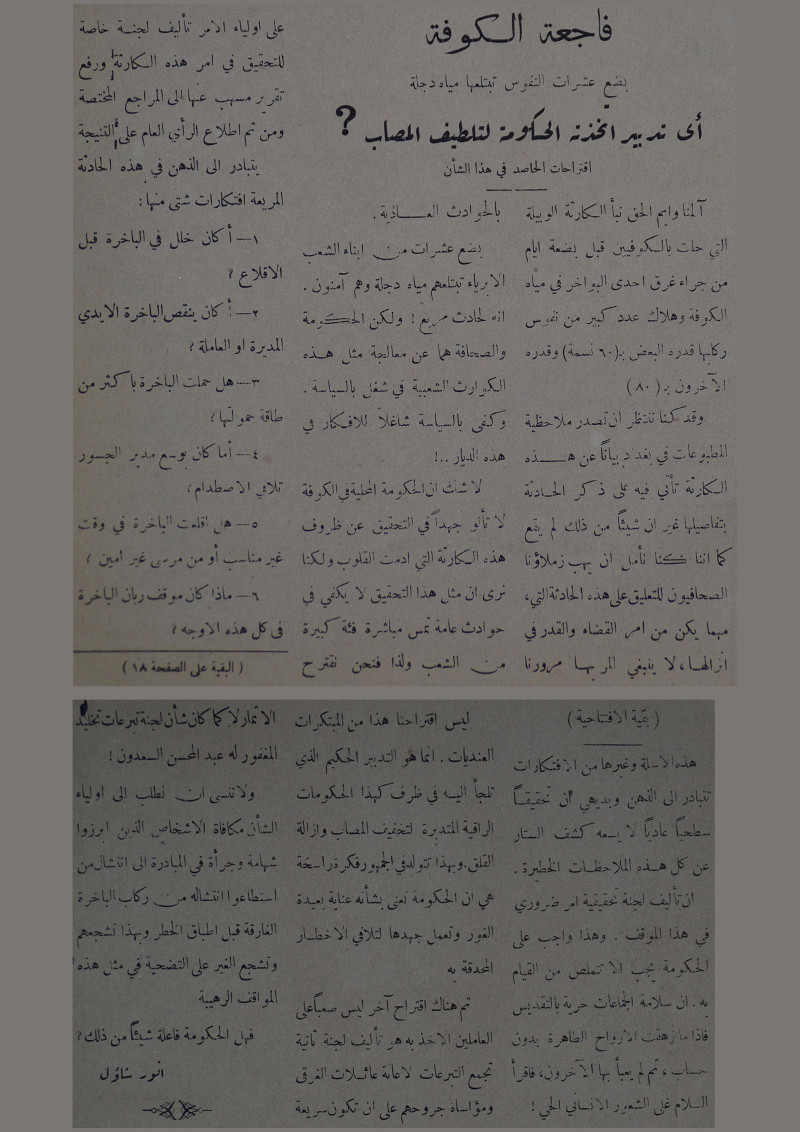 فاجعة الكوفة
بضع عشرات النفوس تبتلعها مياه دجلة
أى تدبير اتخذته الحكومة لتلطيف المصاب ?
اقتراحات الحاصد في هذا الشأن
آلمنا وايم الحق نبأ الكارثة الوبيلة
التي حلت بالكوفيين قبل بضعة ايام
من جراء غرق احدى البواخر في مياه
الكوفة وهلاك عدد كبير من نفوس
ركابها قدره البعض بـ(٦٠ نسمة) وقدره
الآخرون بـ (٨٠)
وقد كنا ننتظر ان تصدر ملاحظية
المطبوعات في بغداد بياناً عن هـــذه
الكارثة تأتي فيه على ذكر الحادثة
بتفاصيلها غير ان شيئاً من ذلك لم يقع
كما اننا كنا نأمل ان يهب زملاؤنا
الصحافيون للتعليق على هذه الحادثة التي،
مهما يكن من امر القضاء والقدر في
انزالهـا، لا ينبغي المر بهـا مرورنا
بالحوادث العـــادية .
بضع عشرات من ابناء الشعب
الابرياء تبتلعهم مياه دجلة وهم آمنون .
انه لحادث مريع ! ولكن الحكومة
والصحافة هما عن معالجة مثل هـذه
الكوارث الشعبية في شغل بالسياسة .
وكفى بالسياسة شاغلاً للافكار في
هذه الديار ..!
لا شك ان الحكومة المحلية في الكوفة
لا تألو جهداً في التحقيق عن ظروف
هذه الكارثة التي ادمت القلوب ولكنا
نرى ان مثل هذا التحقيق لا يكفي في
حوادث عامة تمس مباشرة فئة كبيرة
من الشعب ولذا فنحن نقترح
على اولياء الامر تأليف لجنة خاصة
للتحقيق في امر هذه الكارثة ورفع
تقرير مسهب عنها الى المراجع المختصة
ومن ثم اطلاع الرأي العام على النتيجة
يتبادر الى الذهن في هذه الحادثة
المريعة افتكارات شتى منها:
١— أ كان خلل في الباخرة قبل
الاقلاع ?
٢— أ كان ينقص الباخرة الايدي
المديرة او العاملة ?
٣— هل حملت الباخرة باكثر من
طاقة حمولتها ?
٤— أما كان بوسع مدير الجسور
تلافي الاصطدام ?
٥— هل اقلعت الباخرة في وقت
غير مناسب أو من مرسى غير امين ?
٦— ماذا كان موقف ربان الباخرة
في كل هذه الاوجه ?
( البقية على الصفحة ١٨ )
( بقية الافتتاحية )
هذه الاسئلة وغيرها من الافتكارات
تتبادر الى الذهن وبديهي ان تحقيقـــاً
سطحياً عادياً لا يسعه كشف الستار
عن كل هـذه الملاحظات الخطيرة .
ان تأليف لجنة تحقيقية امر ضروري
في هذا الموقف . وهذا واجب على
الحكومة يجب الا تتملص من القيام
به . ان سلامة الجماعات حرية بالتقديس
فاذا ما زهقت الارواح الطاهرة بدون
حساب ، ثم لم يعبأ بها الآخرون، فاقرأ
السلام على الشعور الانساني الحي !
ليس اقتراحنا هذا من المبتكرات
العنديات . انما هو التدبير الحكيم الذي
تلجأ اليـه في ظرف كهذا الحكومات
الراقية المتدبرة لتخفيف المصاب وازالة
القلق. وبهذا تتولد في الجمهور فكرة راسخة
هي ان الحكومة تعنى بشأنه عناية بعيدة
الغور وتعمل جهدها لتلافي الاخطـار
المحدقة به
ثم هناك اقتراح آخر ليس صعباً على
العاملين الاخذ به هو تأليف لجنة ثانية
تجمع التبرعات لاعانة عائـــلات الغرقى
ومؤاساة جروحهم على ان تكون سريعة
الاثمار لا كما كان شأن لجنة تبرعات تخليد
المغفور له عبد المحسن السعدون !
ولا ننسى ان نطلب الى اولياء
الشأن مكافاة الاشخاص الذين ابرزوا
شهامة وجرأة في المبادرة الى انتشال من
استطاعوا انتشاله من ركاب الباخرة
الغارقة قبل اطباق الخطر وبهذا تشجعهم
وتشجع الغير على التضحية في مثل هذه
المواقف الرهيبة
فهل الحكومة فاعلة شيئاً من ذلك ?
انور شاؤل